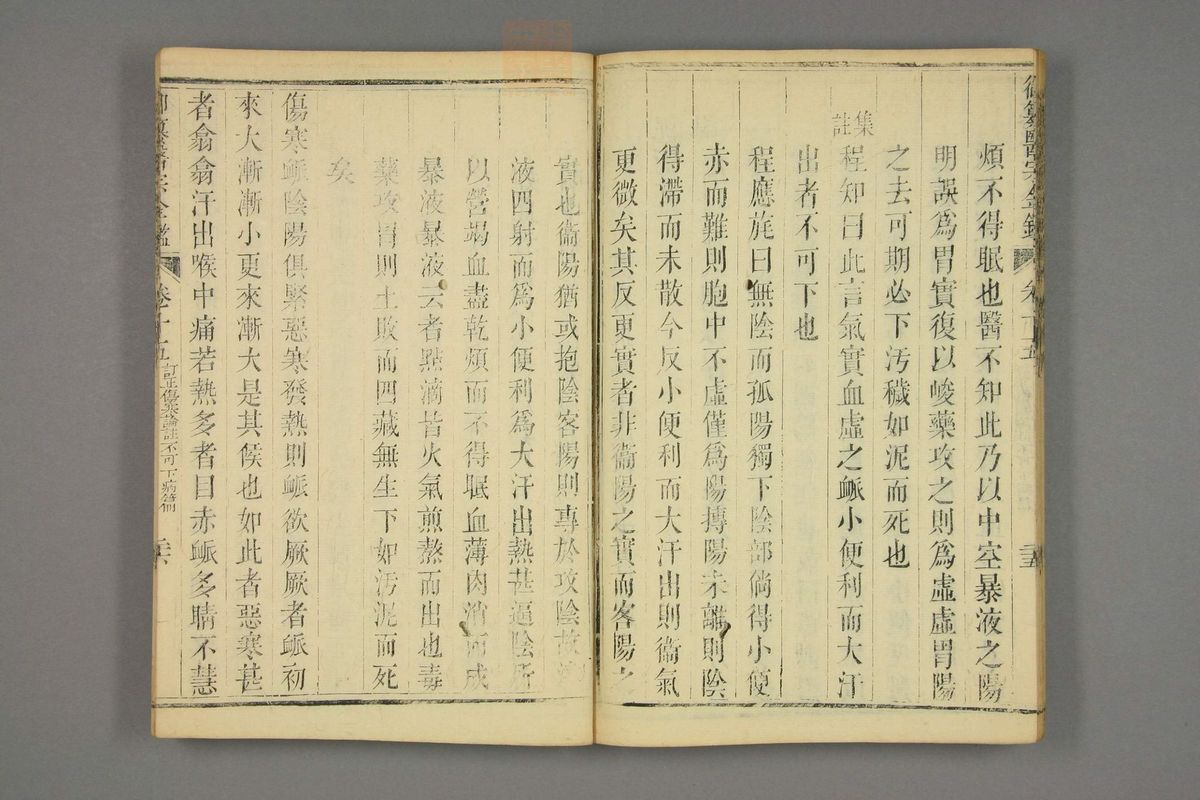 御纂醫宗金鑑 卷十五 二五
煩不得眠也醫不知此乃以中空暴液之陽
明誤爲胃實復以峻藥攻之則爲虛虛胃陽
之去可期必下汚穢如泥而死也
集註
程知曰此言氣實血虛之衇小便利而大汗
出者不可下也
程應旄曰無陰而孤陽獨下陰部倘得小便
赤而難則胞中不虛僅爲陽摶陽未離則陰
得滯而未散今反小便利而大汗出則衞氣
更微矣其反更實者非衞陽之實而客陽之
實也衞陽猶或抱陰客陽則專於攻陰故
液四射而爲小便利爲大汗出熱甚逼陰所
以營竭血盡乾煩而不得眠血薄肉消而成
暴液暴液云者點滴皆火氣煎熬而出也毒
藥攻胃則土敗而四藏無生下如汚泥而死
矣
傷寒衇陰陽俱緊惡寒發熱則衇欲厥厥者衇初
來大漸漸小更來漸大是其候也如此者惡寒甚
者翕翕汗出喉中痛若熱多者目赤衇多睛不慧
御纂醫宗金鑑 卷十五 訂正傷寒論註不可下病篇 二六